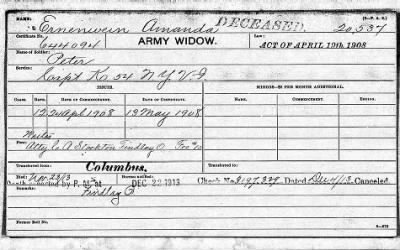 NAME: (3—P. A. D.)
Ernenwein Amanda DECEASED. 20,537
Certificate No. 644094 ARMY WIDOW. ACT OF APRIL 19th 1908
Name of Soldier: Peter
Service: K 54 N.Y.V.I.
ISSUE. MINORS—$2 PER MONTH ADDITIONAL.
CLASS. RATE. DATE OF COMMENCEMENT. DATE OF CERTIFICATE. RATE. DATE OF COMMENCEMENT. DATE OF CERTIFICATE.
12 24 April 1908 19 May 1908
Mailed
Fees: Atty C. A. Stockton Findlay O. Fee $10
Transferred from: Columbus. Transferred to:
Died Nov 23/13 DEC 22 1913 Check No. 3197,329 Dated Dec 4/13 Canceled.
Death reported by P. M. at Findlay O.
Former Roll No.